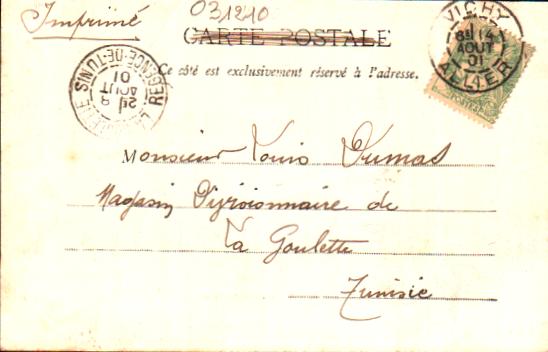 Imprimé
031210
CARTE POSTALE
Ce côté est exclusivement réservé à l'adresse.
VICHY
8E 14
AOUT
01
ALLIER
LA GOULETTE REGENCE-DE-TUNIS
2E 8
AOUT
01
Monsieur Louis Dumas
Magasin Divisionnaire de
La Goulette
Tunisie